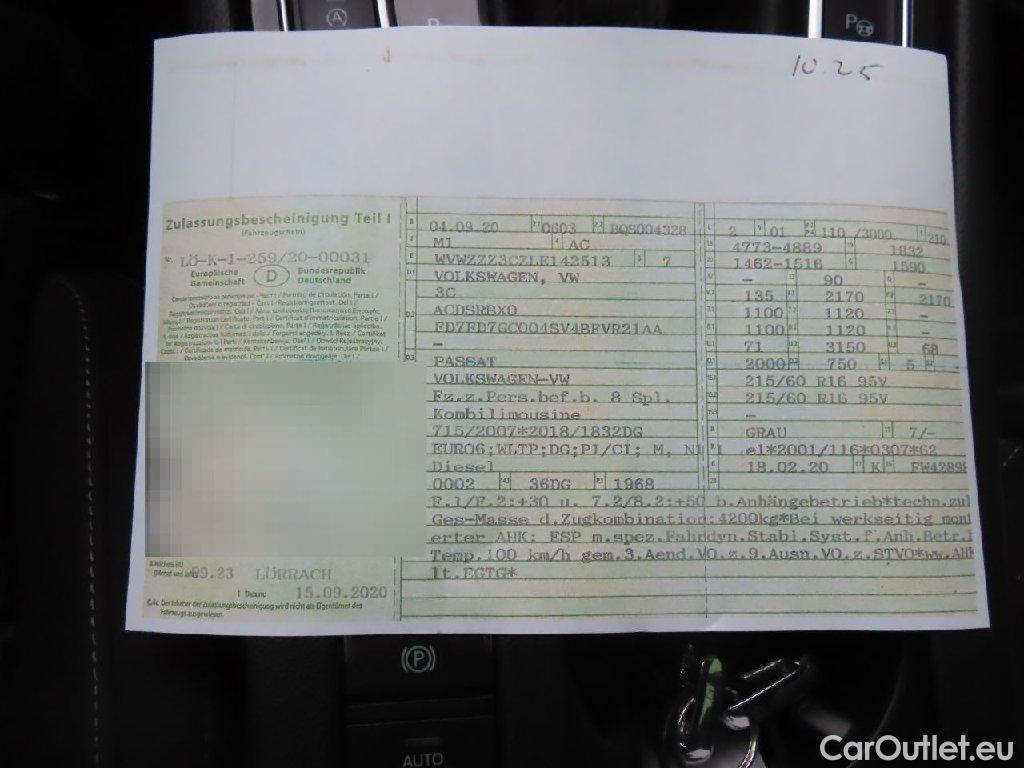 10.25
Zulassungsbescheinigung Teil I
(Fahrzeugschein)
Nr. LÖ-K-1-259/20-00031
Europäische Gemeinschaft D Bundesrepublik Deutschland
B 04.09.20 2.1 0603 2.2 BQS004328
J M1 4 AC
E WVWZZZ3CZLE142513 3 7
D.1 VOLKSWAGEN, VW
3C
D.2 ACDSRBX0
FD7FD7GC004SV4BFVR21AA
–
D.3 PASSAT
VOLKSWAGEN-VW
Fz.z.Pers.bef.b. 8 Spl.
Kombilimousine
715/2007*2018/1832DG
EURO6;WLTP;DG;PI/CI; M, N1 I
Diesel
0002 36DG 1968
2 01 110 /3000 210
4773-4889 1832
1462-1516 1590
– 90 –
135 2170 2170
1100 1120 –
1100 1120 –
71 3150 68
2000 750 5
215/60 R16 95V
215/60 R16 95V
–
GRAU 7/–
e1*2001/116*0307*62
18.02.20 K FW42898
F.1/F.2:+30 u. 7.2/8.2:+50 b.Anhängebetrieb*techn.zul
Ges-Masse d.Zugkombination:4200kg*Bei werkseitig mont
erter AHK: ESP m.spez.Fahrdyn.Stabi.Syst.f.Anh.Betr.
Temp.100 km/h gem.3.Aend.VO.z.9.Ausn.VO.z.STVO*ww.AHK
lt.EGTG*
09.23 LÖRRACH
I Datum: 15.09.2020
C.4c Der Inhaber der Zulassungsbescheinigung wird nicht als Eigentümer des
Fahrzeugs ausgewiesen.
P
AUTO
CarOutlet.eu